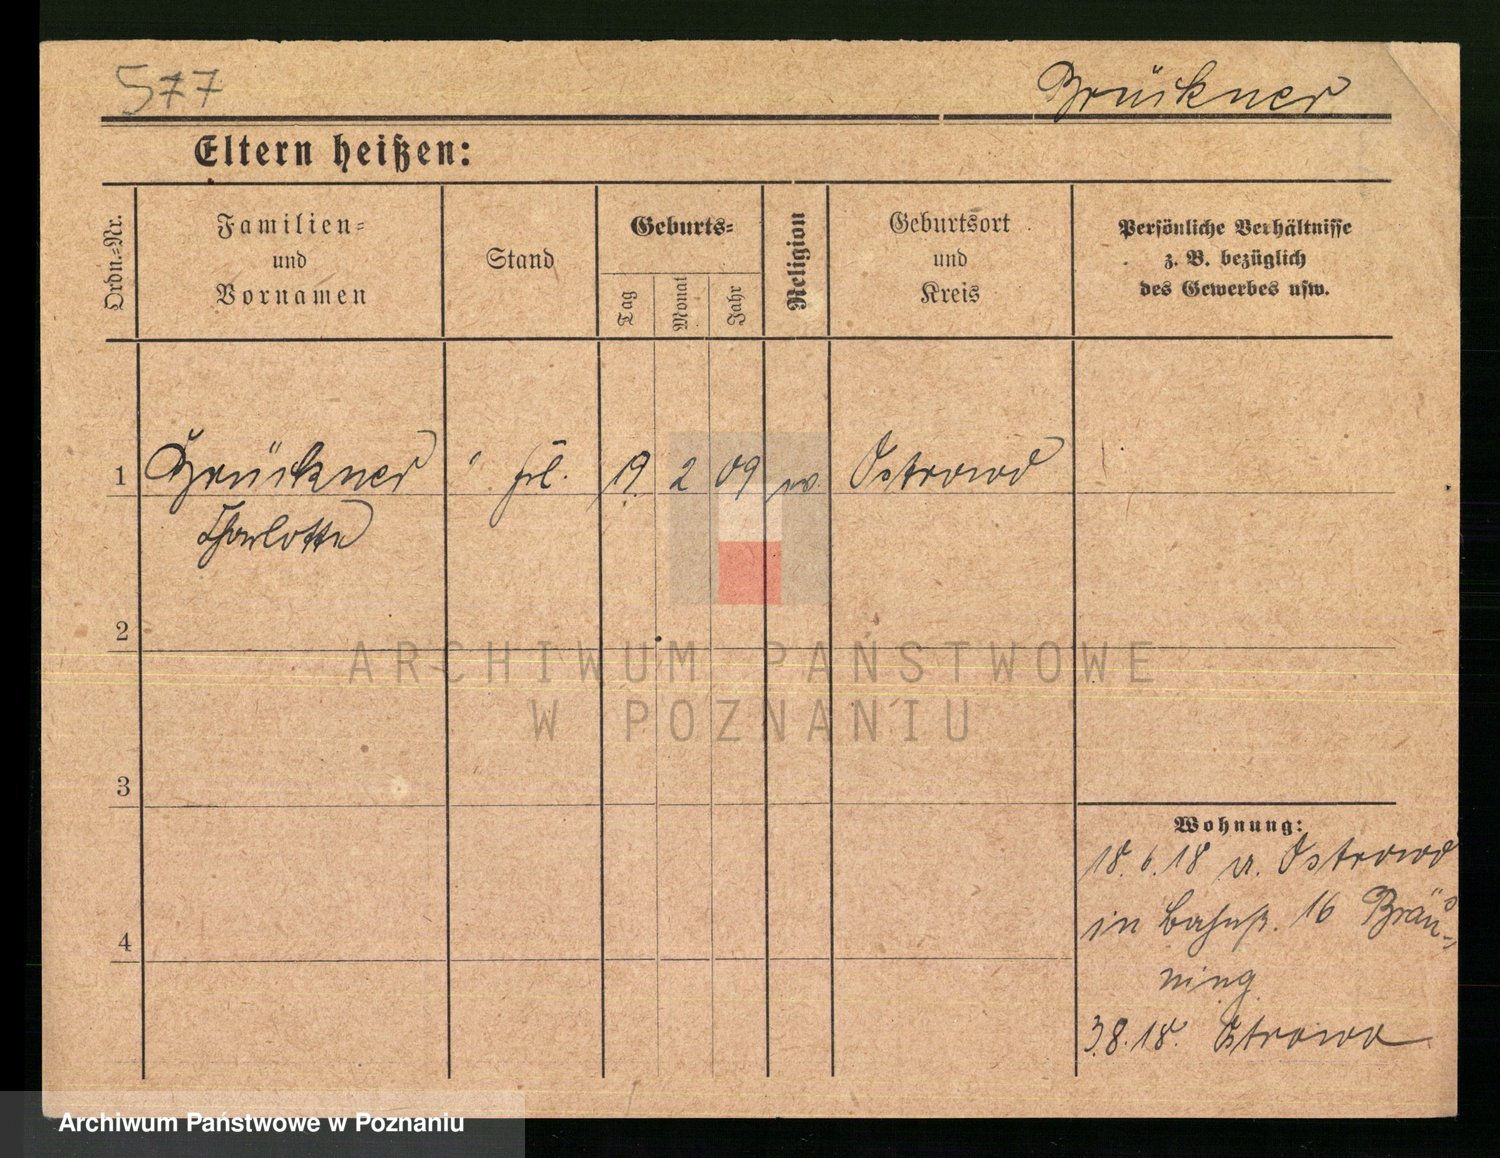 577
Brückner
Eltern heißen:
Ordn.-Nr.
Familien-
und
Vornamen
Stand
Geburts-
Tag
Monat
Jahr
Religion
Geburtsort
und
Kreis
Persönliche Verhältnisse
z. B. bezüglich
des Gewerbes usw.
1 Brückner Frl. 9. 2 09 ev. Ostrowo
Charlotte
2
ARCHIWUM PAŃSTWOWE
W POZNANIU
3
Wohnung:
18. 6. 18 v. Ostrowo
in 16 Bräu-
4
ning
3.8.18. Ostrowo
Archiwum Państwowe w Poznaniu